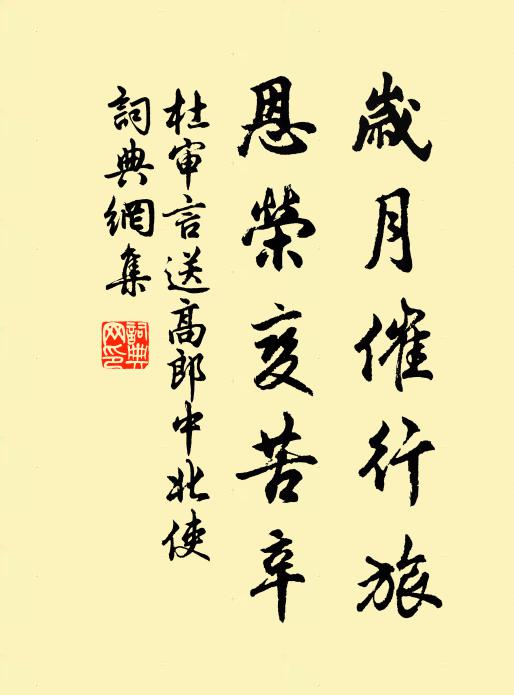 歲月催行旅
恩榮变苦辛
杜审言送高郎中北使
詞典網集
詞典
网印